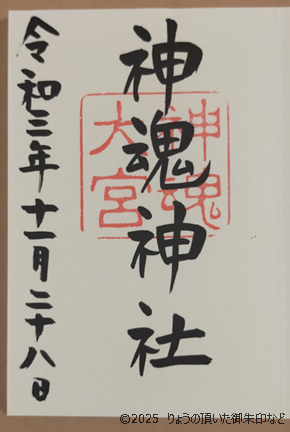 神魂神社
神魂
大宮
令和三年十一月二十八日
©2025 りょうの頂いた御朱印など